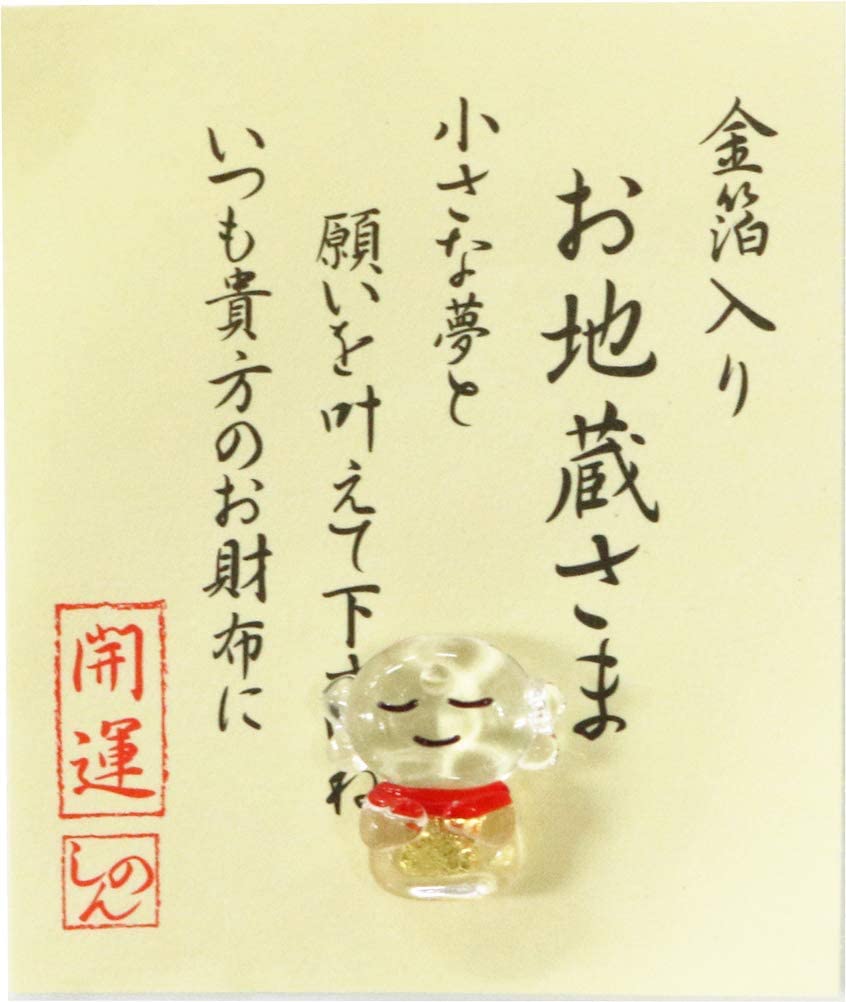 金箔入り
お地蔵さま
小さな夢と
願いを叶えて下さ ね
いつも貴方のお財布に
開運
のしん